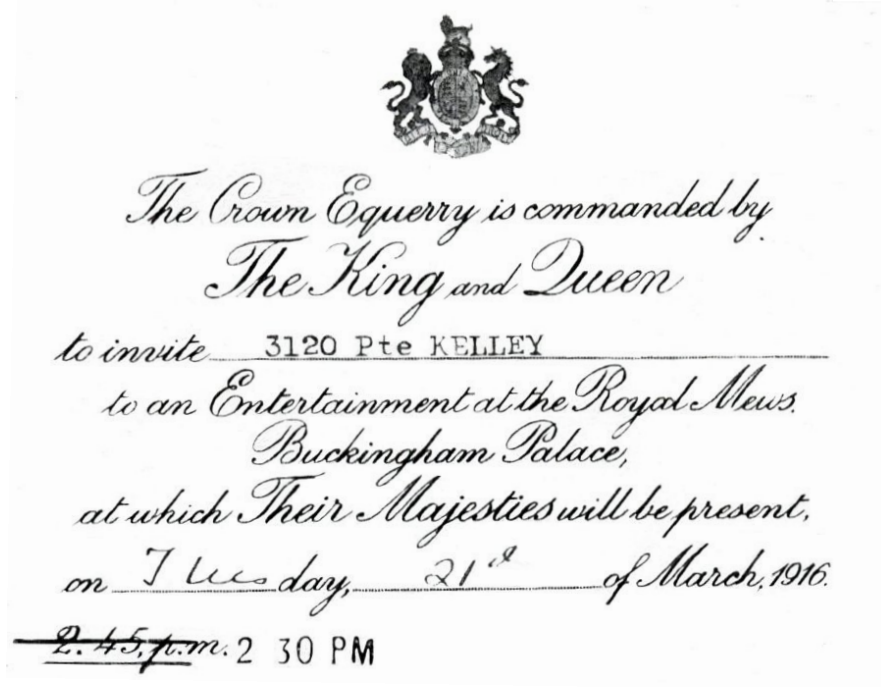 The Crown Equerry is commanded by
The King and Queen
to invite 3120 Pte KELLEY
to an Entertainment at the Royal Mews.
Buckingham Palace,
at which Their Majesties will be present,
on Tuesday, 21st of March, 1916.
2.45.p.m. 2 30 PM